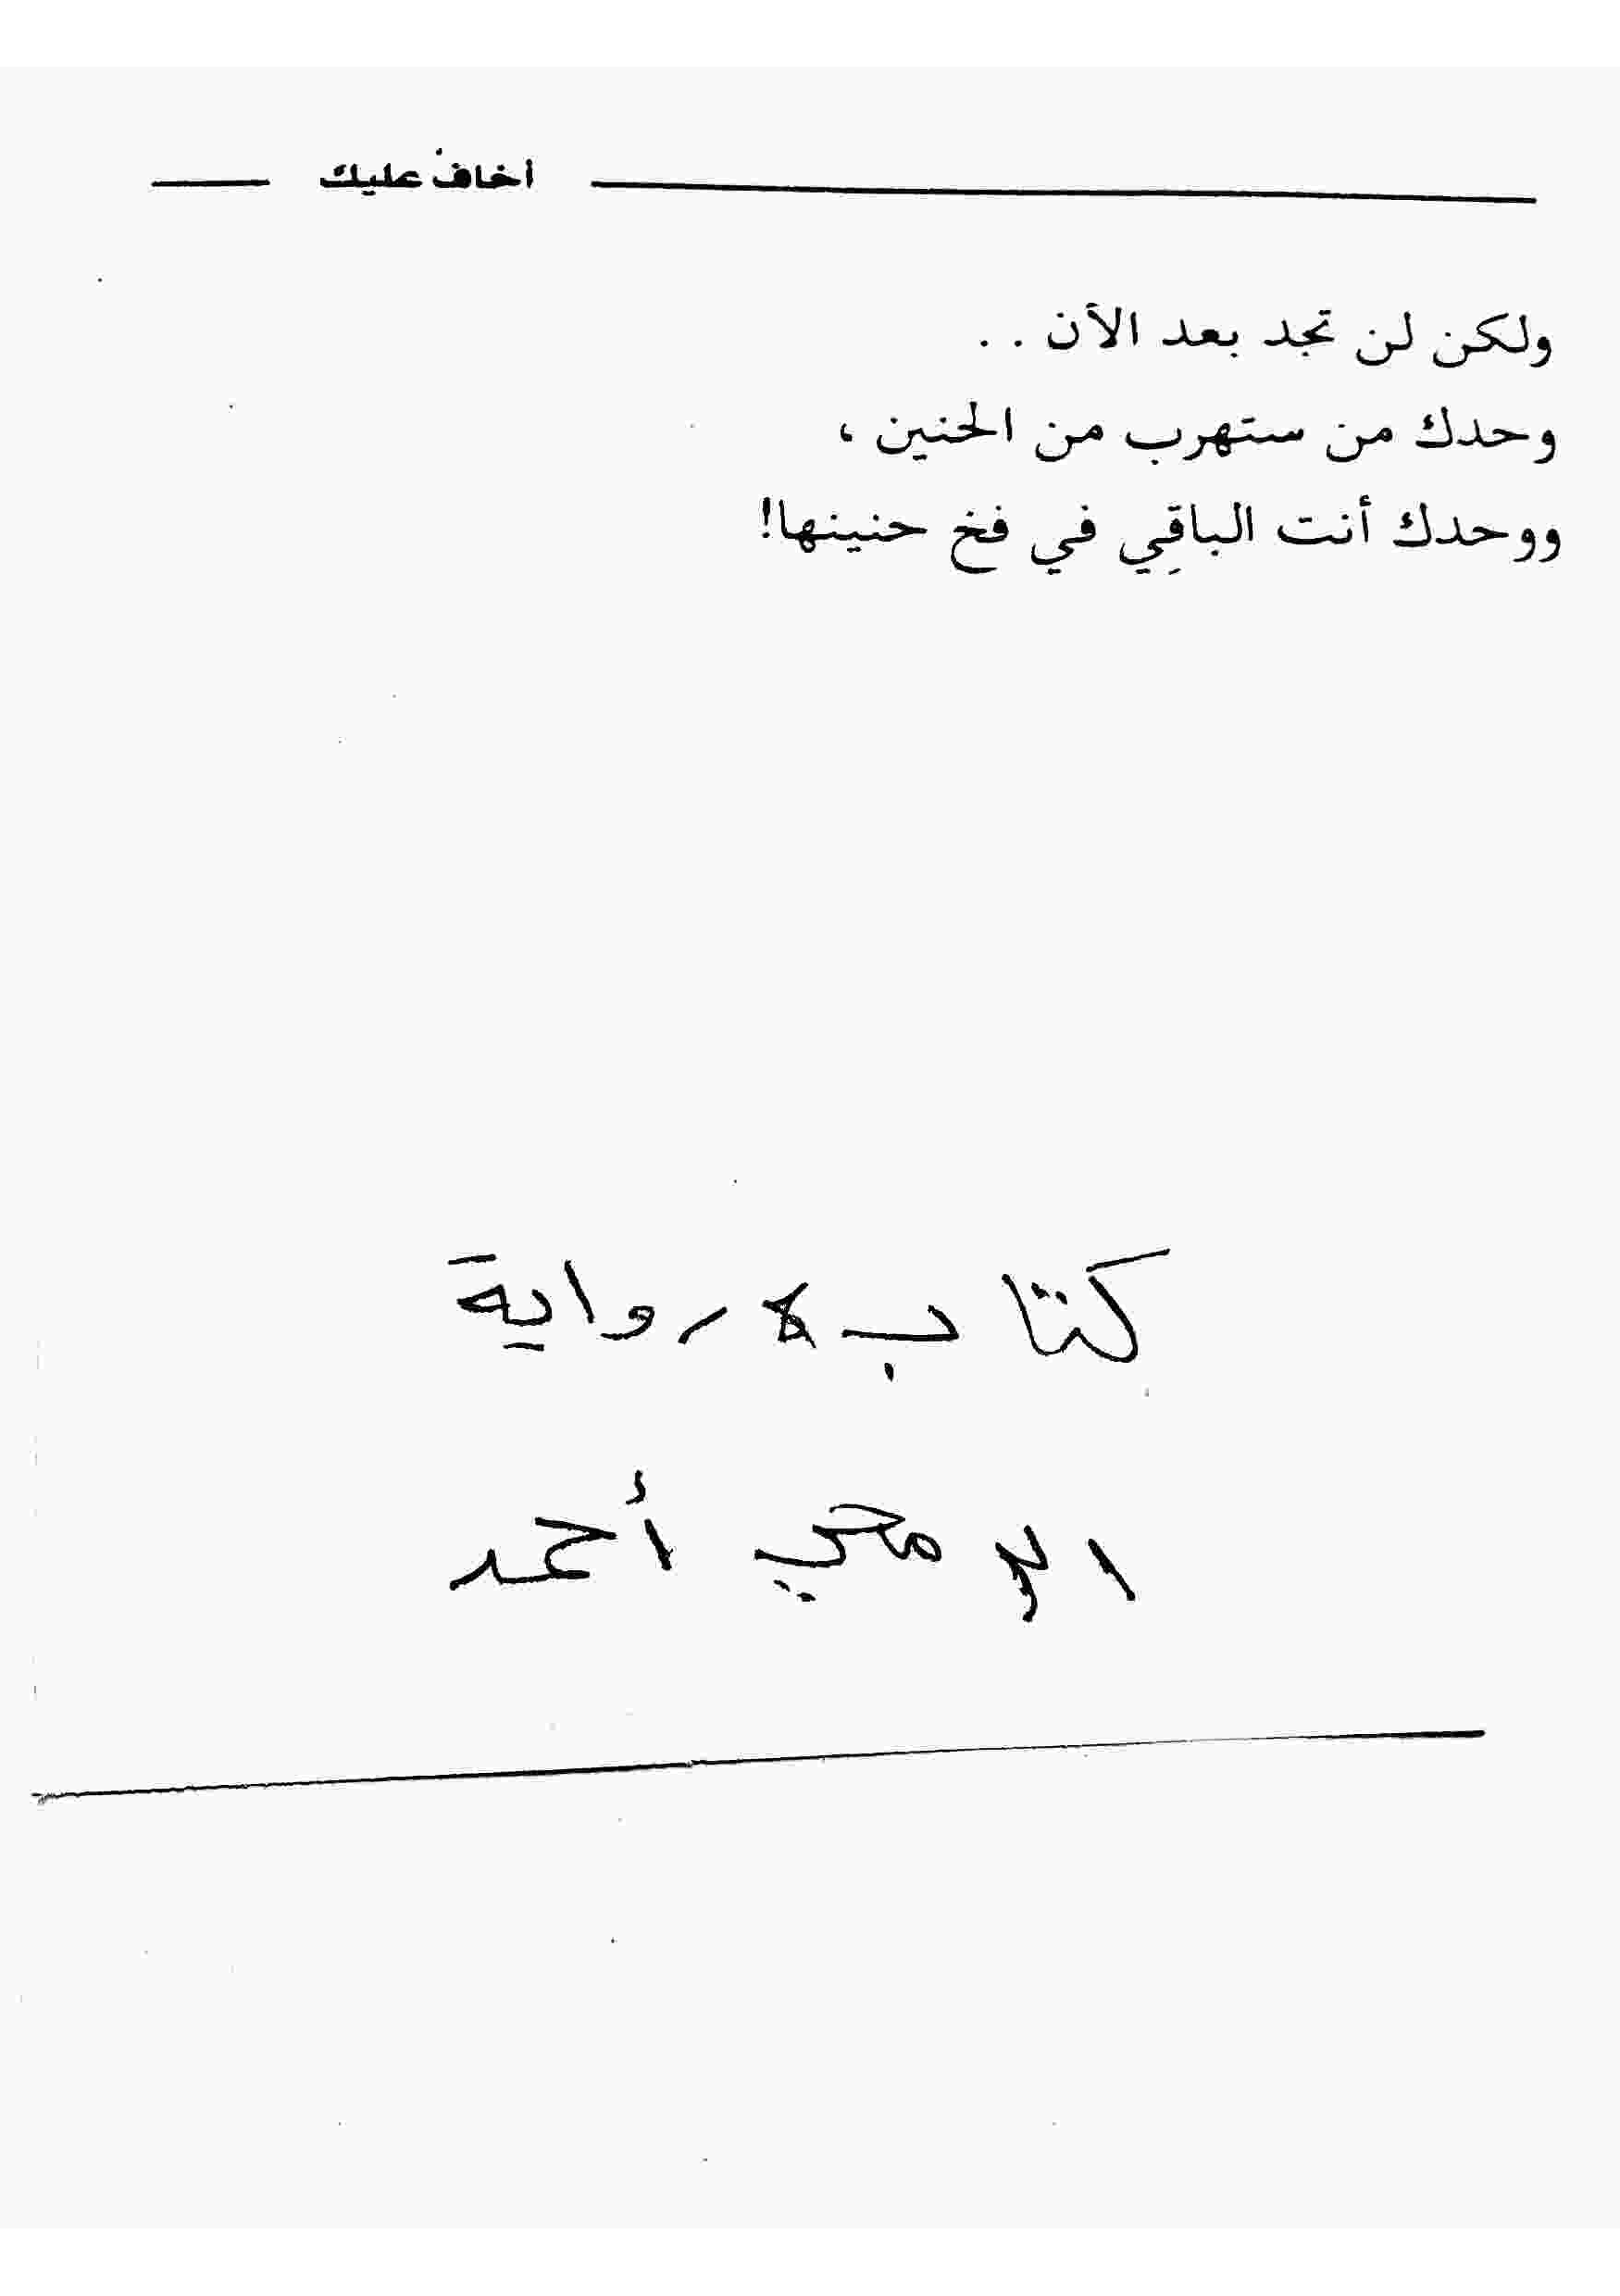 أخاف عليك
ولكن لن تجد بعد الآن . .
وحدك من ستهرب من الحنين ،
ووحدك أنت الباقِي في فخ حنينها!
كتاب لا رواية
أحمد